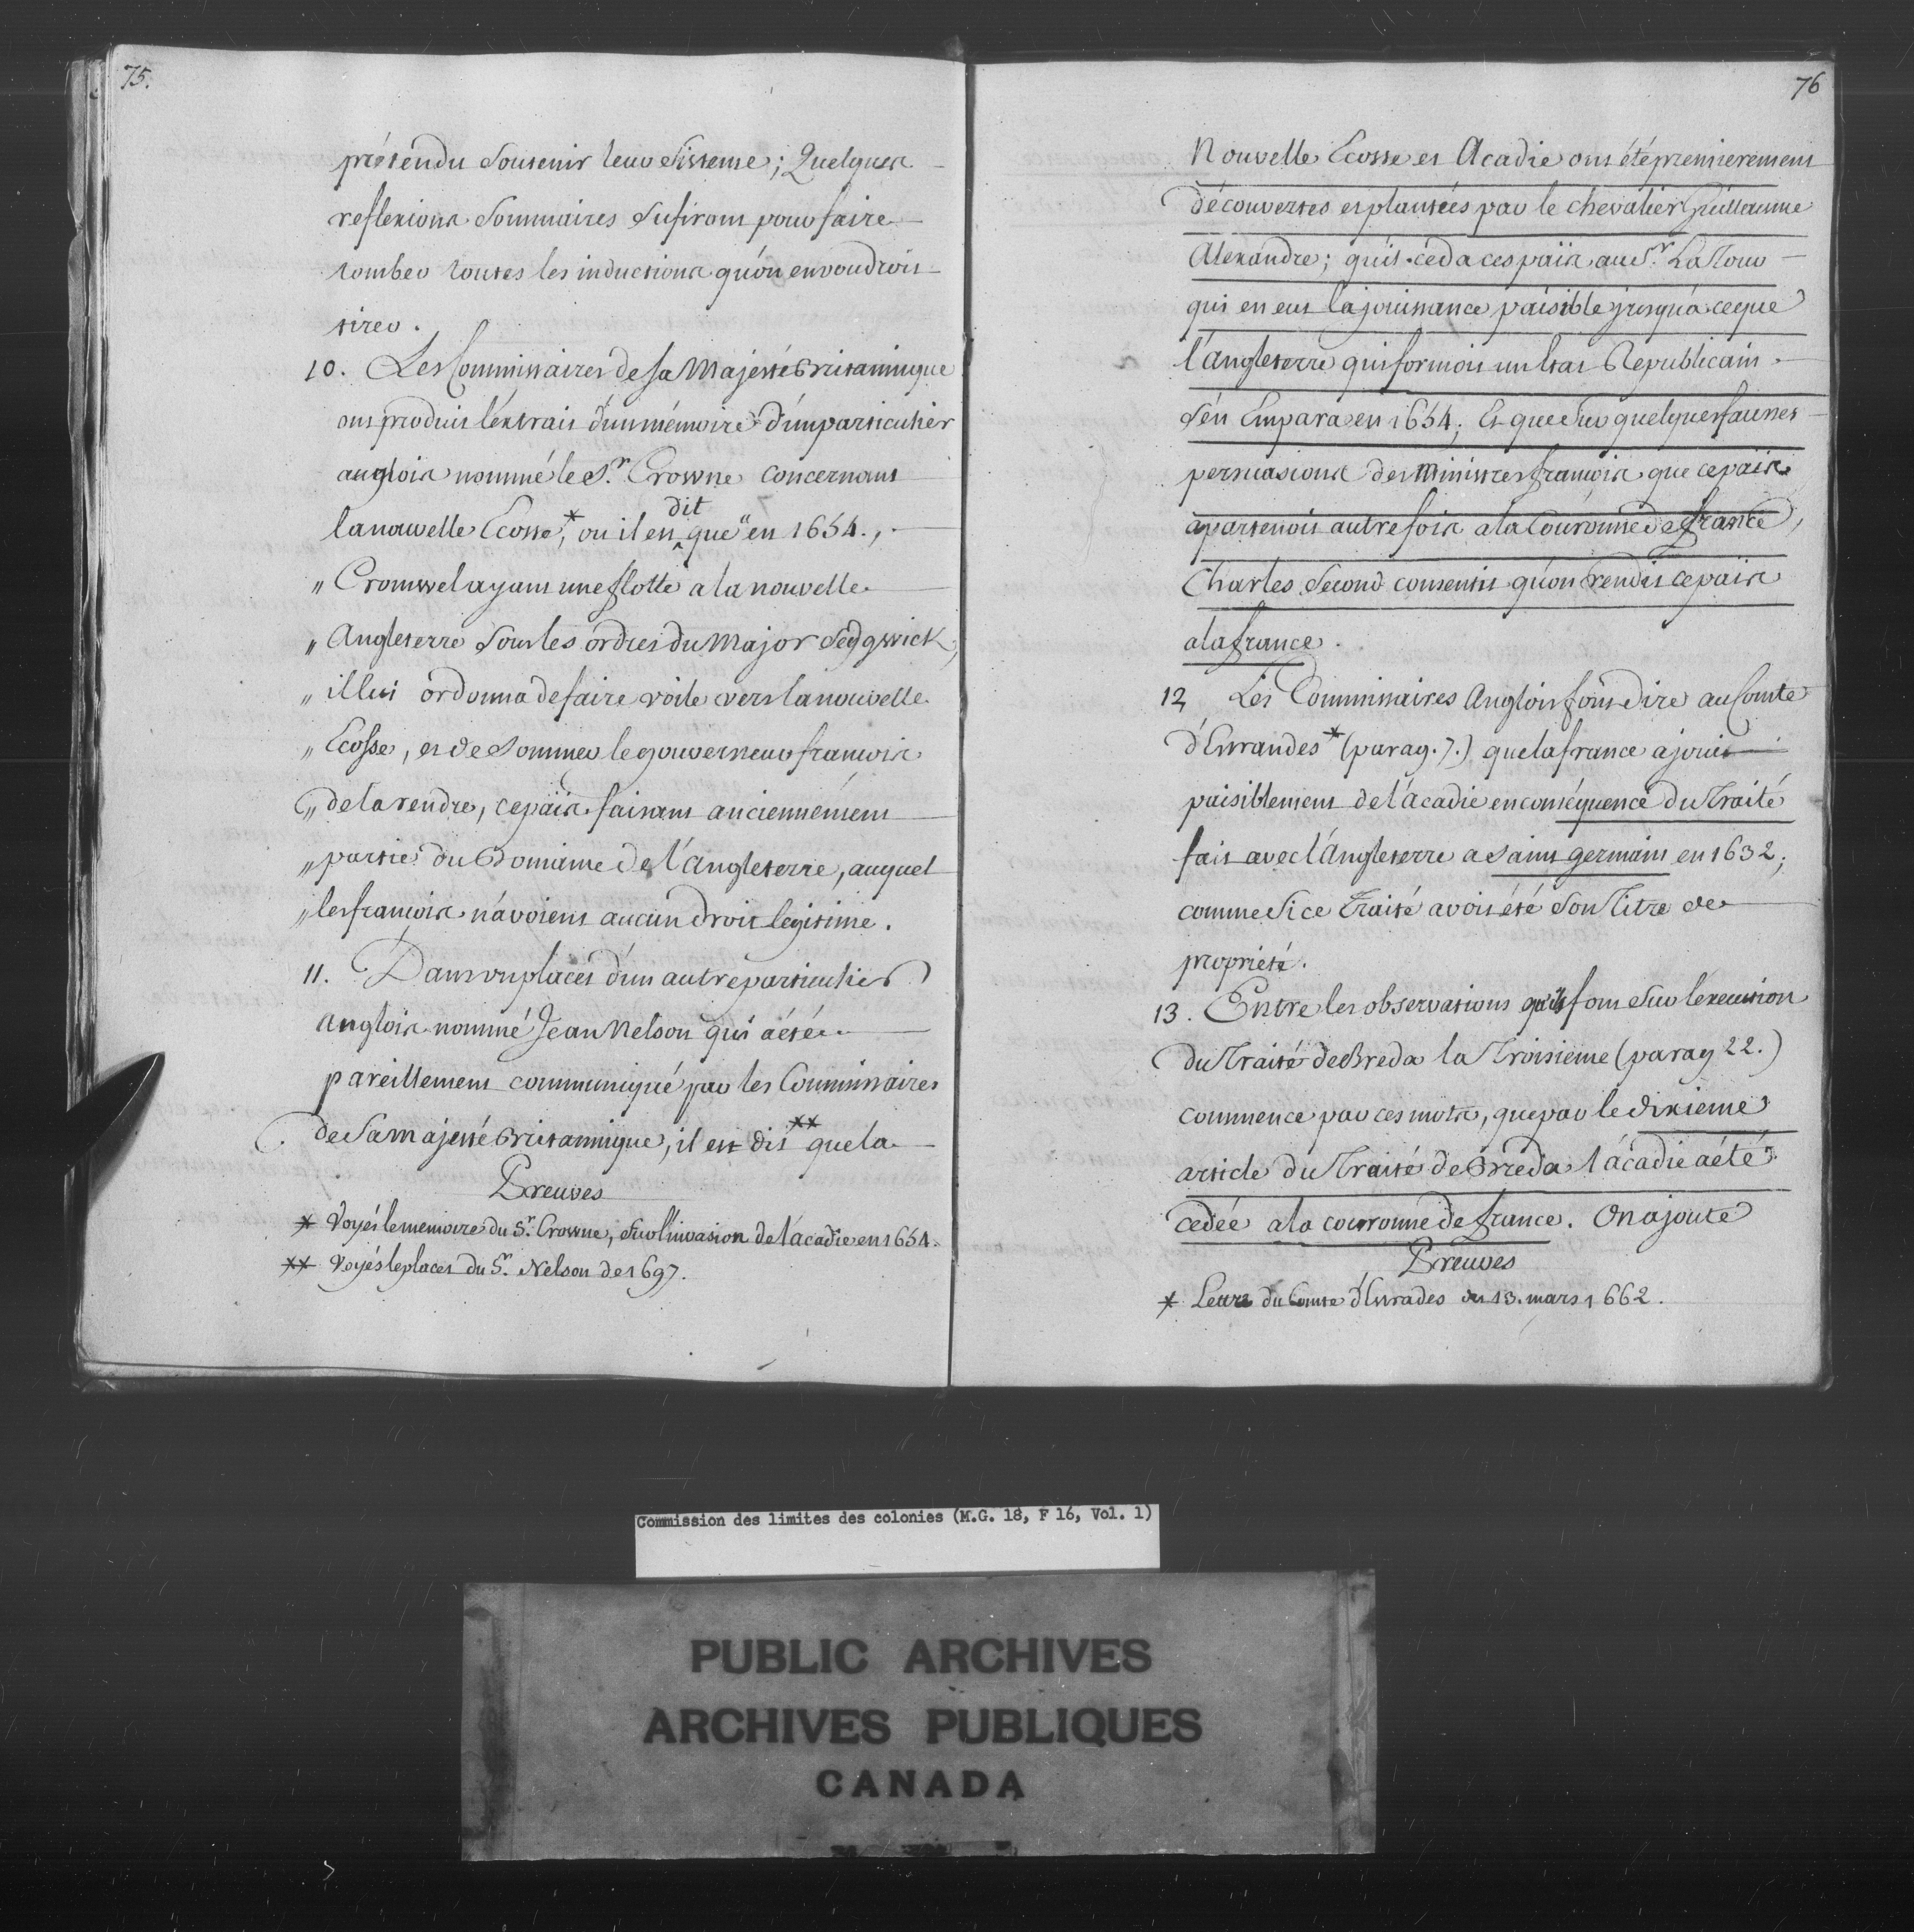 75.
prétendu Soutenir leur Sisteme ; Quelques
reflexions Sommaires Sufiront pour faire
tomber toutes les inductions qu'on en voudroit
tirer.
10. Les Commissaires de Sa Majesté Britannique
ont produit l'extrait d'un mémoire d'un particulier
anglois nommé le S.r Crowne concernant
la nouvelle Ecosse,* ou il est dit que " en 1654.,
„ Cromwel ayant une flotte a la nouvelle
„ Angleterre Sous les ordres du Major Sedgwick,
„ il lui ordonna de faire voile vers la nouvelle
„ Ecosse, et de Sommer le gouverneur francois
„ de la rendre, ce païs faisant anciennement
„ partie du Domaine de l'Angleterre, auquel
„ les francois n'avoient aucun droit legitime.
11. Dans un placet d'un autre particulier
anglois nommé Jean Nelson qui a été
pareillement communiqué par les Commissaires
de Sa majesté Britannique, il est dit ** que la
Preuves
* Voyés le memoire du S.r Crowne, Sur l'invasion de l'acadie en 1654.
** Voyés le placet du S.r Nelson de 1697.
76
Nouvelle Ecosse et Acadie ont été premierement
découvertes et plantées par le chevalier Guillaume
Alexandre ; qu'il céda ces païs au S.r La Tour
qui en eut la jouissance paisible jusqu'à ce que
l'angleterre qui formoit un Etat Republicain
s'en Empara en 1654 ; Et que Sur quelques fausses
persuasions des Ministres francois que ce païs
apartenoit autrefois a la Couronne de france,
Charles Second consentit qu'on rendit ce païs
a la france.
12 Les Commissaires Anglois font dire au Comte
d'Estrandes * (parag. 7.) que la france a jouit
paisiblement de l'acadie en conséquence du Traité
fait avec l'Angleterre a Saint germain en 1632 ;
comme Si ce Traité avoit été Son Titre de
proprieté.
13. Entre les observations qu'ils font Sur l'execution
du Traité de Breda la Troisieme (parag 22.)
commence par ces mots, que par le dixieme
article du Traité de Breda l'acadie a été
cedée a la couronne de france. On ajoute
Preuves
* Lettre du Comte d'Estrades du 13. mars 1662.
Commission des limites des colonies (M.G. 18, F 16, Vol. 1)
PUBLIC ARCHIVES
ARCHIVES PUBLIQUES
CANADA